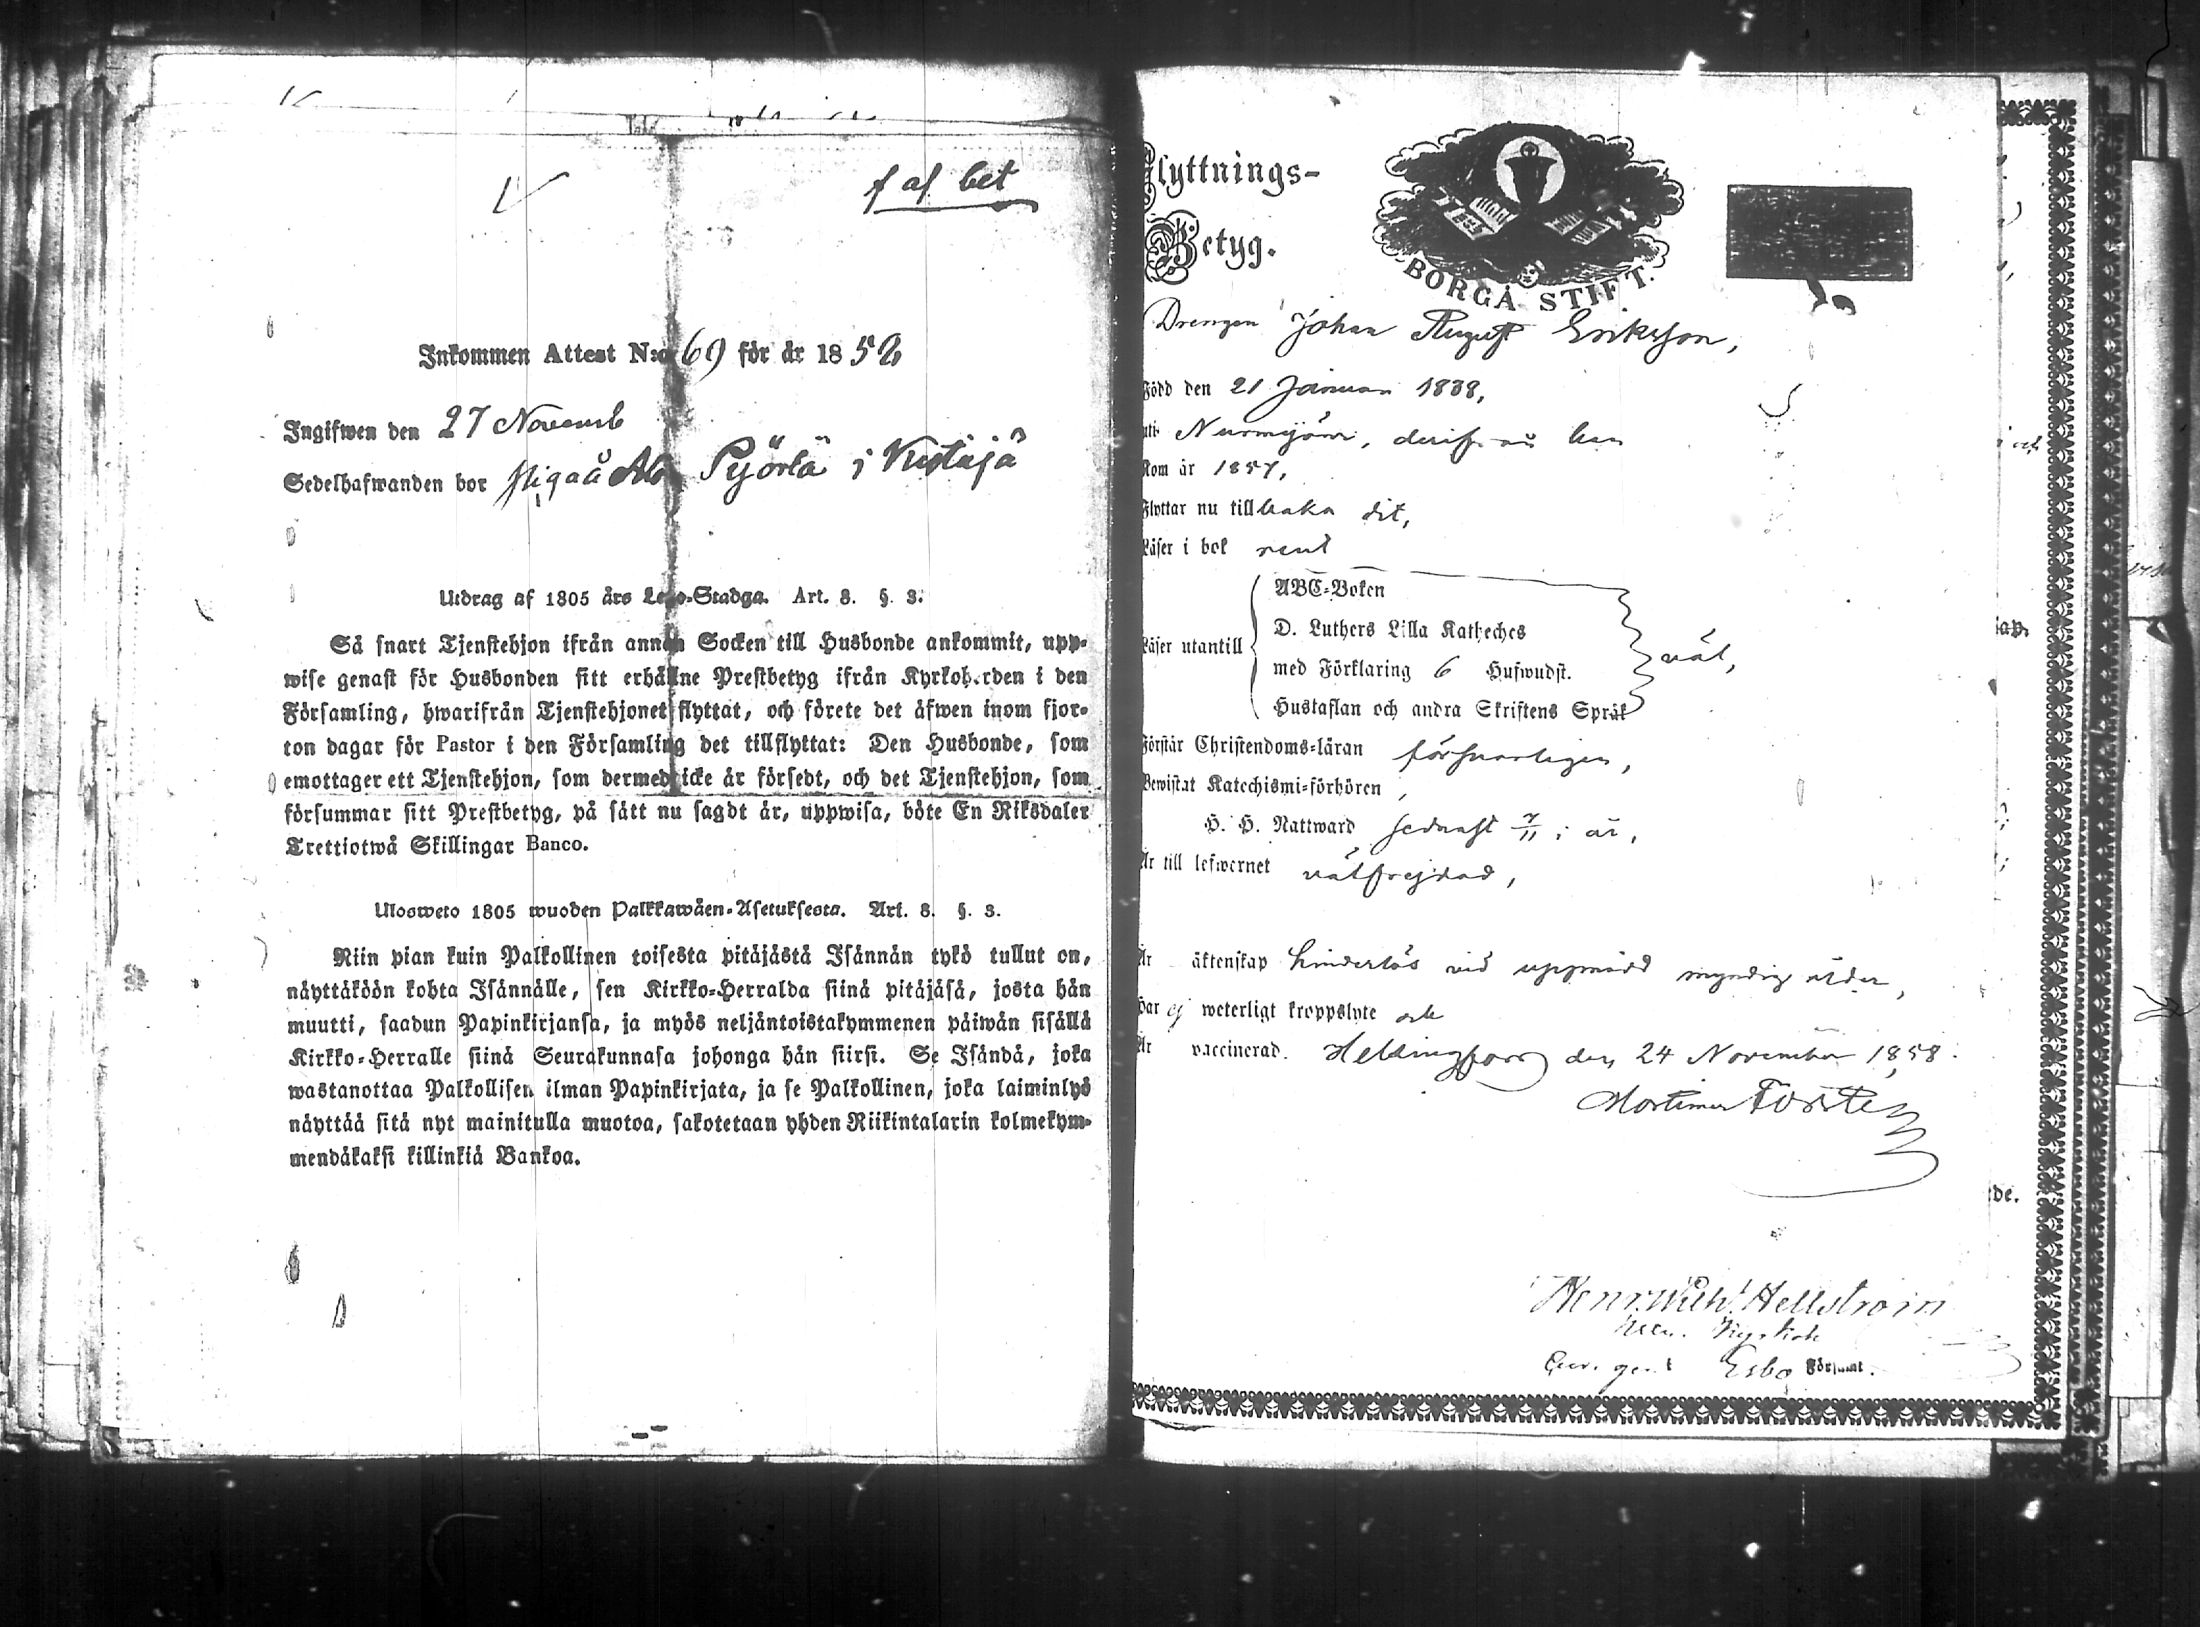 f af bet
Inkommen Attest N:o 69 för år 1858
Ingifwen den 27 Novemb
Sedelhafwanden bor Pyörlä i
Utdrag af 1805 års Lego-Stadga. Art. 8. §. 3.
Så snart Tjenstehjon ifrån annan Socken till Husbonde ankommit, upp-
wise genast för Husbonden sitt erhållne Prestbetyg ifrån Kyrkoherden i den
Församling, hwarifrån Tjenstehjonet flyttat, och förete det äfwen inom fjor-
ton dagar för Pastor i den Församling det tillflyttat: Den Husbonde, som
emottager ett Tjenstehjon, som dermed icke är försedt, och det Tjenstehjon, som
försummar sitt Prestbetyg, på sätt nu sagdt är, uppwisa, böte En Riksdaler
Trettiotwå Skillingar Banco.
Ulosweto 1805 wuoden Palkkawäen-Asetuksesta. Art. 8. §. 3.
Niin pian kuin Palkollinen toisesta pitäjästä Isännän tykö tullut on,
näyttäköön kohta Isännälle, sen Kirkko-Herralda siinä pitäjäsä, josta hän
muutti, saadun Papinkirjansa, ja myös neljäntoistakymmenen päiwän sisällä
Kirkko-Herralle siinä Seurakunnasa johonga hän siirsi. Se Isändä, joka
wastanottaa Palkollisen ilman Papinkirjata, ja se Palkollinen, joka laiminlyö
näyttää sitä nyt mainitulla muotoa, sakotetaan yhden Riikintalarin kolmekym-
mendäkaksi killinkiä Bankoa.
Flyttnings-
Betyg.
BORGÅ STIFT.
Drengen Johan August Eriksson,
Född den 21 Januari 1838,
uti Nurmijärvi, derifrån han
Kom år 1857,
Flyttar nu tillbaka dit,
Läser i bok rent
Läser utantill
ABC-Boken
D. Luthers Lilla Katheches
med Förklaring 6 Hufwudst.
Hustaflan och andra Skriftens Språk
väl,
Förstår Christendoms-läran försvarligen,
Bewistat Katechismi-förhören
H. H. Nattward sednast 7/11 i år,
Är till lefwernet välfrejdad,
Är äktenskap hinderlös vid uppnådd myndig ålder,
Har ej weterligt kroppslyte och
Är vaccinerad. Helsingfors den 24 November 1858.
Mortimer
Henr. Wilh. Hellström
Esbo Församl.